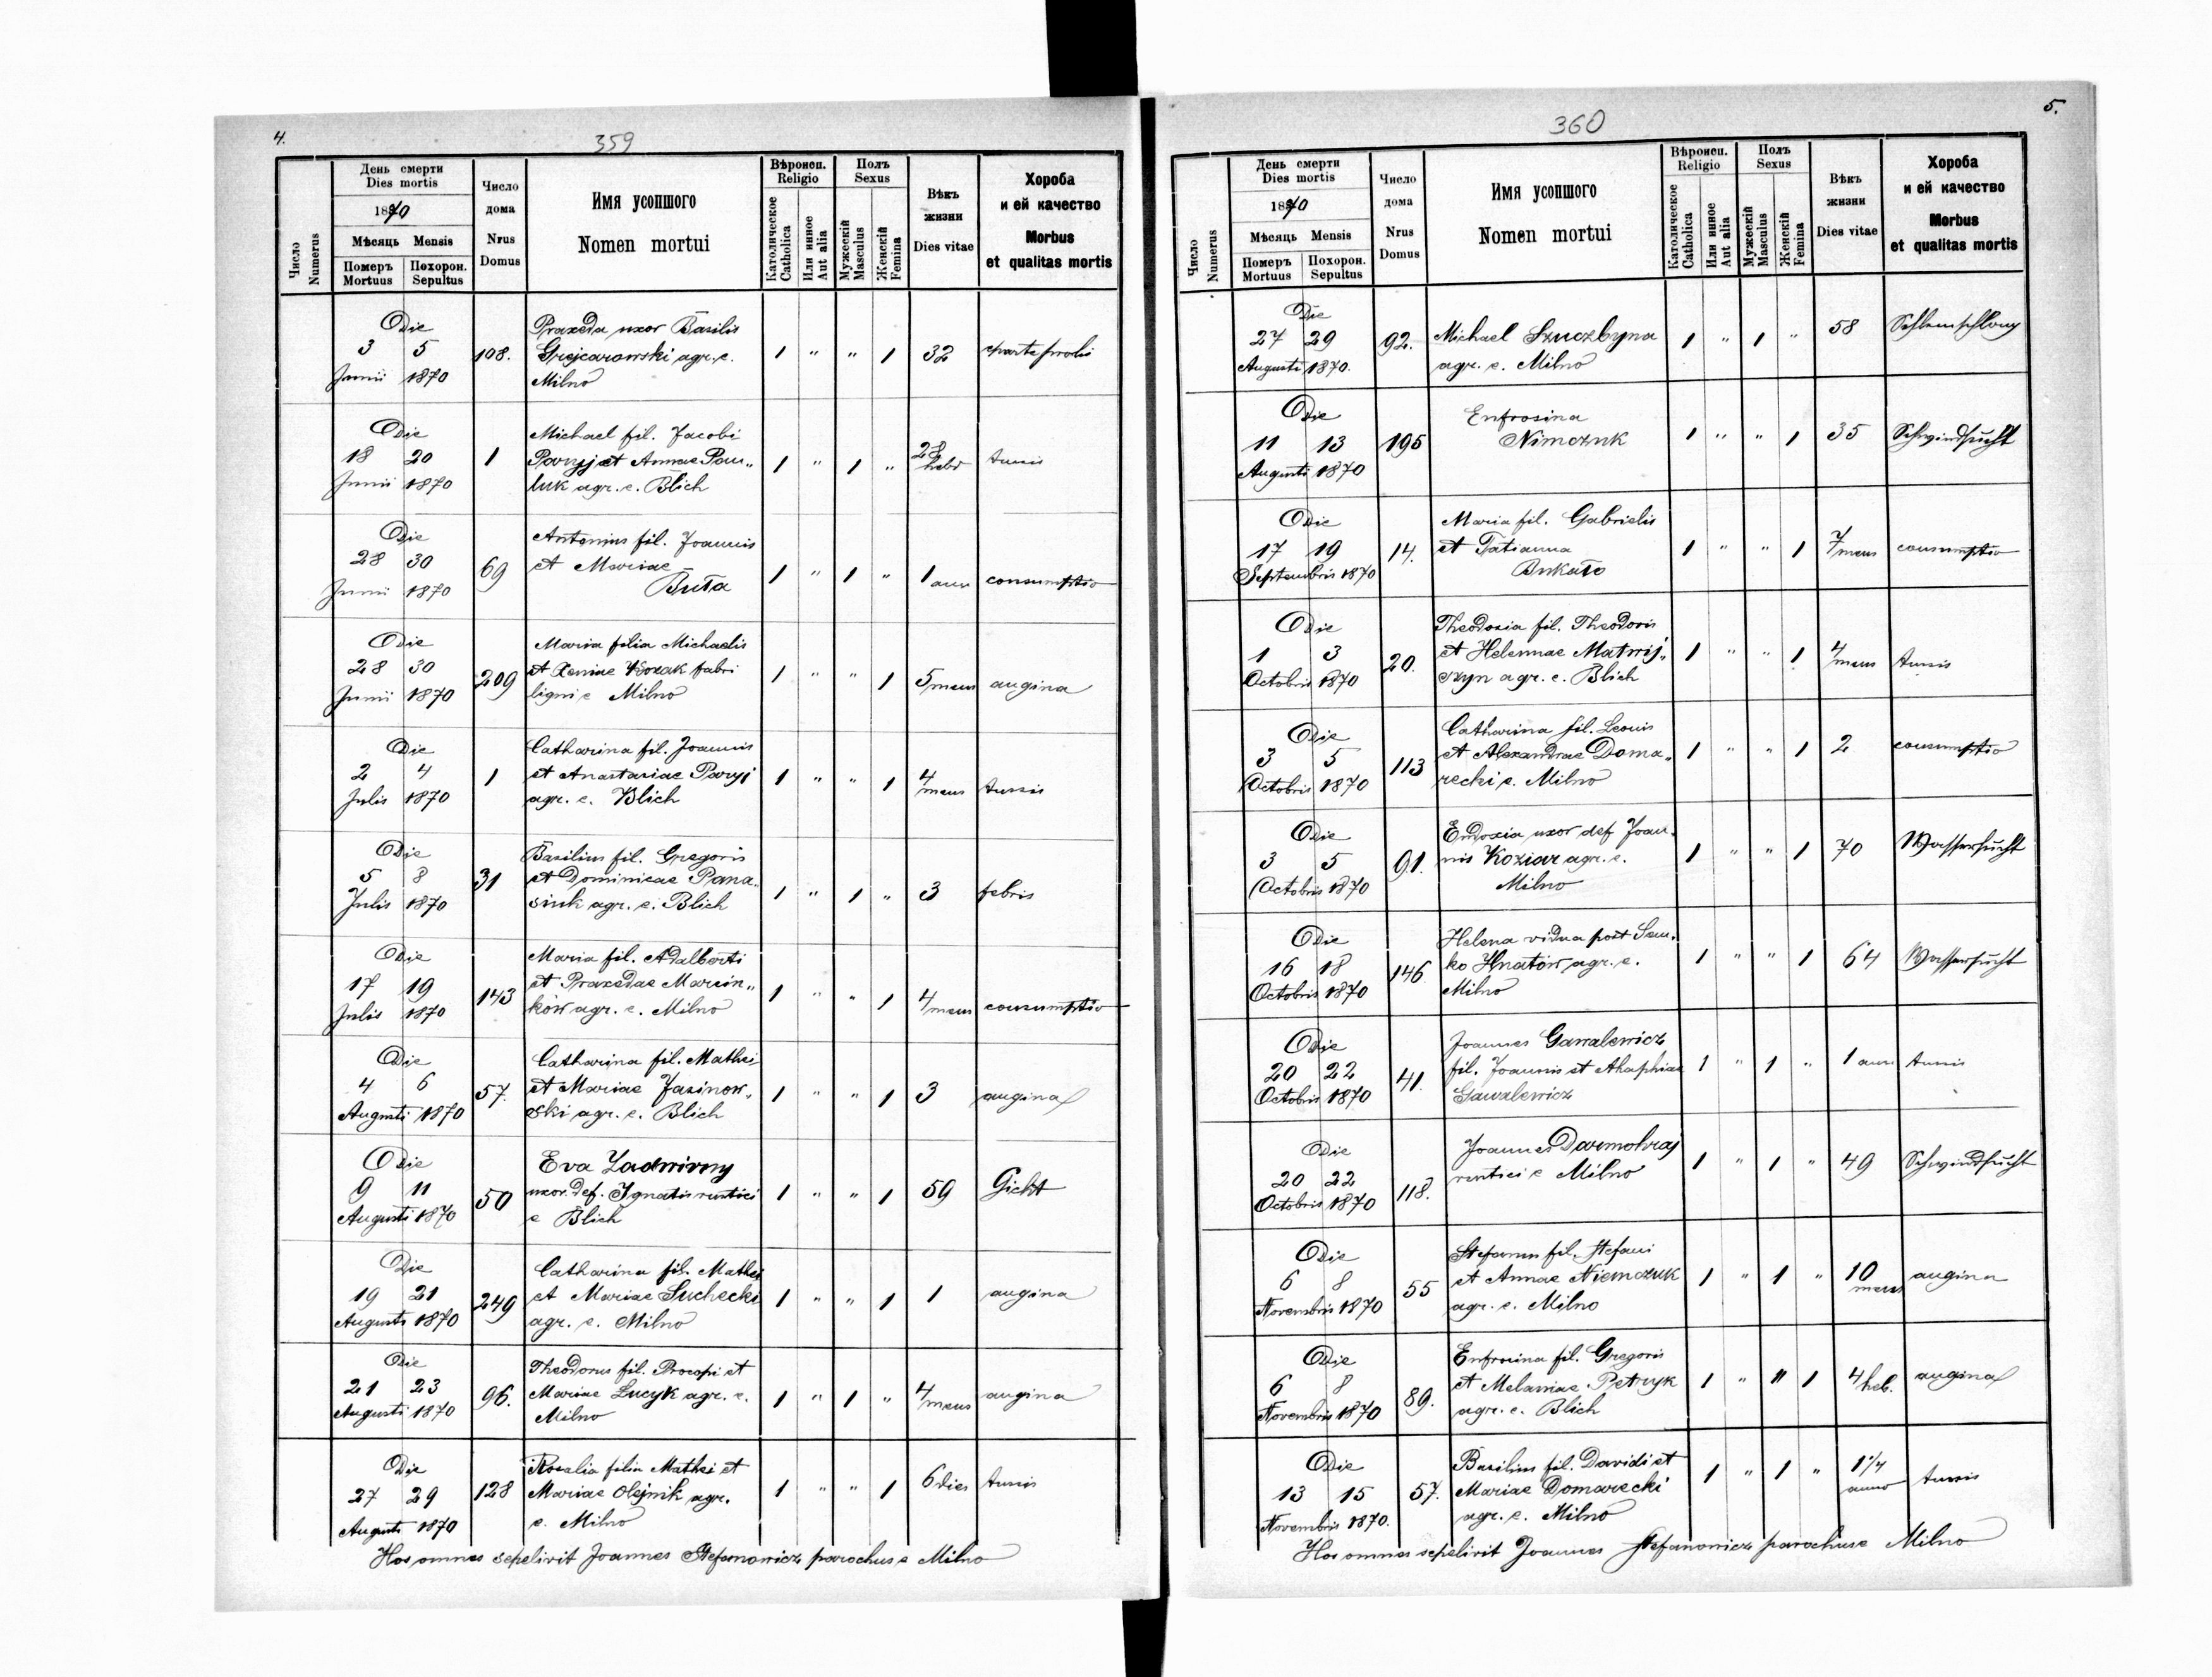 4.
359
День смерти
Dies mortis
1870
Мѣсяць Mensis
Померъ Похорон.
Mortuus Sepultus
Число
Numerus
Число
дома
Nrus
Domus
Имя усопшого
Nomen mortui
Вѣроисп.
Religio
Католическое
Catholica
Или инное
Aut alia
Полъ
Sexus
Мужескій
Masculus
Женскій
Femina
Вѣкъ
жизни
Dies vitae
Хороба
и ей качество
Morbus
et qualitas mortis
Die
3 5
Junii 1870
108.
Praxeda uxor Basilii
Grejcarowski agr. e.
Milno
1 " " 1
32
Die
18 20
Junii 1870
1
Michael fil. Jacobi
Paryj et Annae Paw„
luk agr. e. Blich
1 " 1 "
28
hebd
tussis
Die
28 30
Junii 1870
69
Antonius fil. Joannis
et Mariae
Buta
1 " 1 "
1 ann
consumptio
Die
28 30
Junii 1870
209
Maria filia Michaelis
et Xeniae Kozak fabri
ligni e Milno
1 " " 1
5 mens
angina
Die
2 4
Julii 1870
1
Catharina fil. Joannis
et Anastasiae Paryj
agr. e. Blich
1 " " 1
4
mens
tussis
Die
5 8
Julii 1870
31
Basilius fil. Gregorii
et Dominicae Pana„
siuk agr. e. Blich
1 " 1 "
3
febris
Die
17 19
Julii 1870
143
Maria fil. Adalberti
et Praxedae Marcin„
ków agr. e. Milno
1 " " 1
4
mens
consumptio
Die
4 6
Augusti 1870
57.
Catharina fil. Mathei
et Mariae Jasinow„
ski agr. e. Blich
1 " " 1
3
angina
Die
9 11
Augusti 1870
50
Eva Zadwirny
uxor. def. Ignatii rustici
e Blich
1 " " 1
59
Gicht
Die
19 21
Augusti 1870
249
Catharina fil. Mathei
et Mariae Suchecki
agr. e. Milno
1 " " 1
1
angina
Die
21 23
Augusti 1870
96.
Theodorus fil. Procopi et
Mariae Lucyk agr. e.
Milno
1 " 1 "
4
mens
angina
Die
27 29
Augusti 1870
128
Rosalia filia Mathei et
Mariae Olejnik agr.
e. Milno
1 " " 1
6 dies
tussis
Hos omnes sepelivit Joannes Stefanowicz parochus e Milno
5.
360
День смерти
Dies mortis
1870
Мѣсяць Mensis
Померъ Похорон.
Mortuus Sepultus
Число
Numerus
Число
дома
Nrus
Domus
Имя усопшого
Nomen mortui
Вѣроисп.
Religio
Католическое
Catholica
Или инное
Aut alia
Полъ
Sexus
Мужескій
Masculus
Женскій
Femina
Вѣкъ
жизни
Dies vitae
Хороба
и ей качество
Morbus
et qualitas mortis
Die
27 29
Augusti 1870.
92.
Michael Szuczbyna
agr. e. Milno
1 " 1 "
58
Die
11 13
Augusti 1870
195
Eufrosina
Nimczuk
1 " " 1
35
Schwindsucht
Die
17 19
Septembris 1870
14.
Maria fil. Gabrielis
et Tatianna
Bukato
1 " " 1
7
mens
consumptio
Die
1 3
Octobris 1870
20.
Theodosia fil. Theodoris
et Helennae Matwij„
szyn agr. e. Blich
1 " " 1
4
mens
tussis
Die
3 5
Octobris 1870
113
Catharina fil. Leonis
et Alexandrae Doma„
recki e. Milno
1 " " 1
2
consumptio
Die
3 5
Octobris 1870
91.
Eudoxia uxor def Joan„
nis Koziar agr. e.
Milno
1 " " 1
70
Wassersucht
Die
16 18
Octobris 1870
146
Helena vidua post Sem„
ko Hnatów agr. e.
Milno
1 " " 1
64
Wassersucht
Die
20 22
Octobris 1870
41.
Joannes Gawalewicz
fil. Joannis et Ahaphiae
Gawalewicz
1 " 1 "
1 ann
tussis
Die
20 22
Octobris 1870
118.
Joannes Darmohraj
rustici e Milno
1 " 1 "
49
Schwindsucht
Die
6 8
Novembris 1870
55
Stefanus fil. Stefani
et Annae Niemczuk
agr. e. Milno
1 " 1 "
10
mens
angina
Die
6 8
Novembris 1870
89.
Eufrosina fil. Gregoris
et Melaniae Petryk
agr. e. Blich
1 " " 1
4 heb.
angina
Die
13 15
Novembris 1870.
57.
Basilius fil. Davidi et
Mariae Domarecki
agr. e. Milno
1 " 1 "
1 1/4
anno
tussis
Hos omnes sepelivit Joannes Stefanowicz parochus e Milno